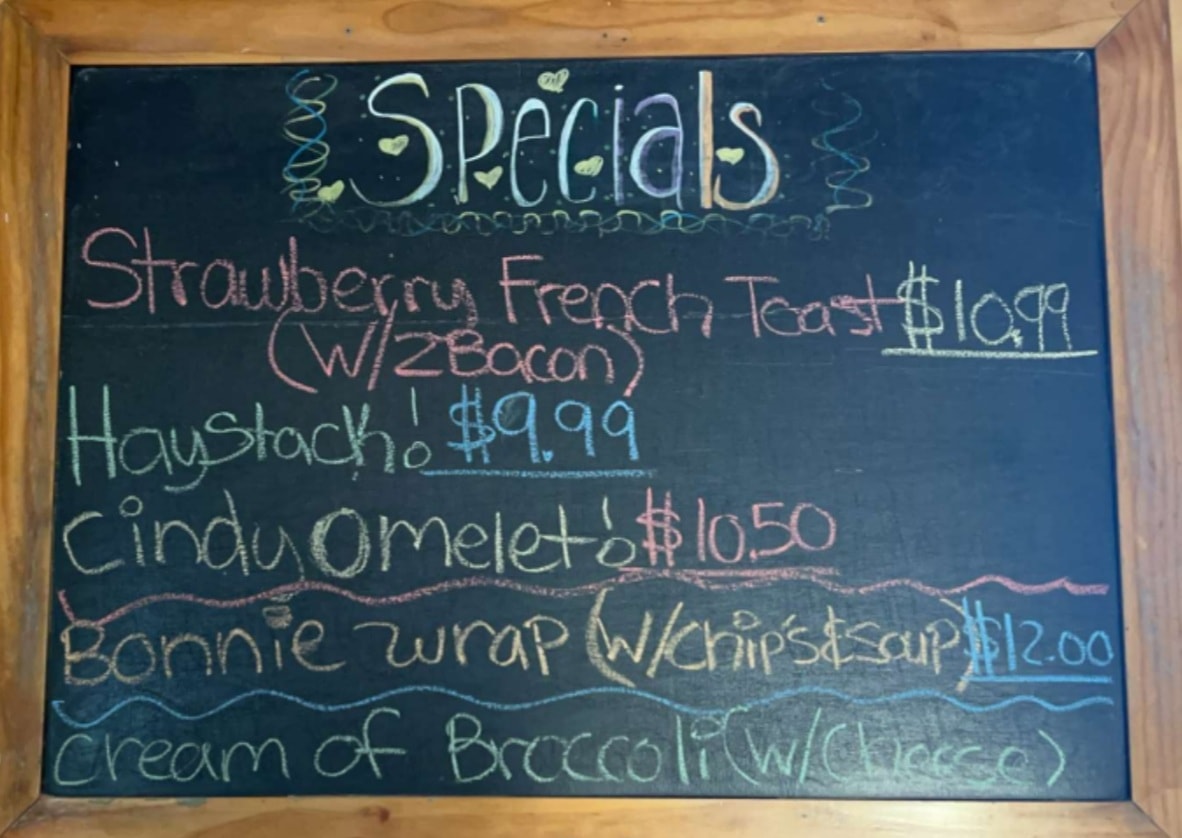 Specials
Strawberry French Toast $10.99
(W/2Bacon)
Haystack! $9.99
Cindy Omelet! $10.50
Bonnie wrap (W/chip's&Soup) $12.00
cream of Broccoli (w/Cheese)